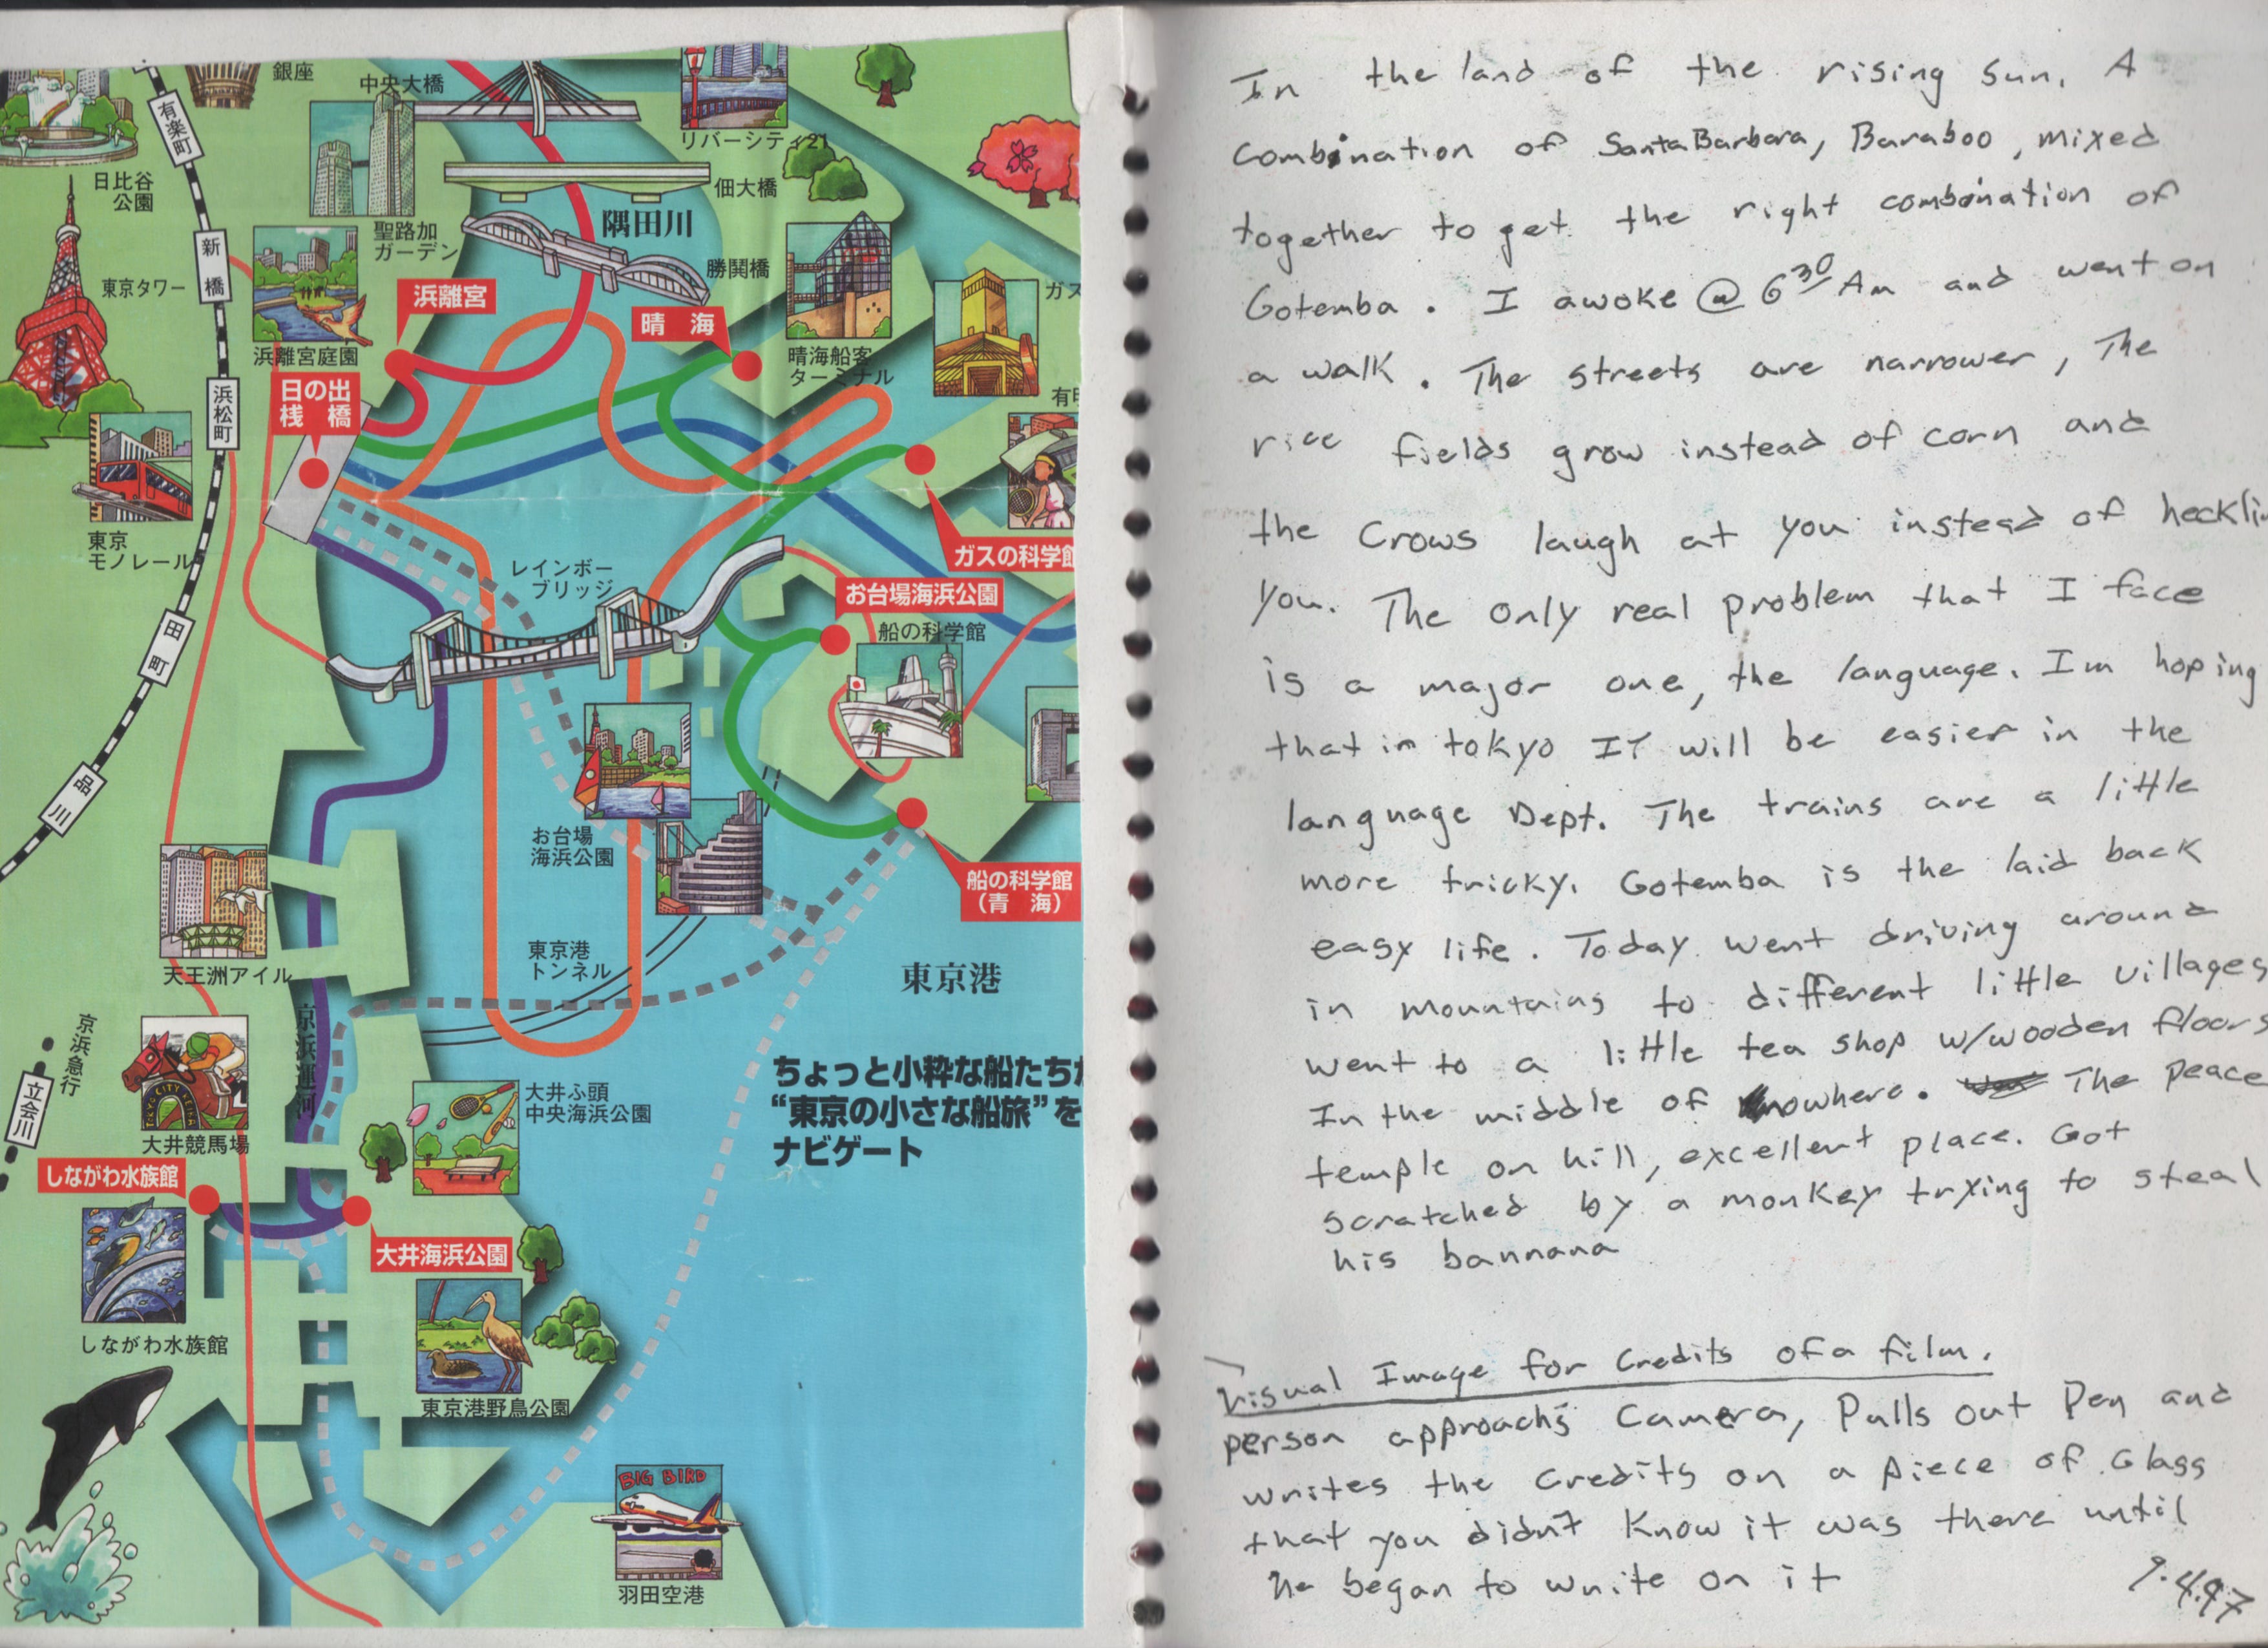 銀座
中央大橋
有楽町
リバーシティ21
日比谷
公園
佃大橋
聖路加
ガーデン
隅田川
新橋
勝鬨橋
東京タワー
浜離宮
晴海
ガス
浜離宮庭園
晴海船客
ターミナル
日の出
桟橋
浜松町
有明
東京
モノレール
ガスの科学館
レインボー
ブリッジ
お台場海浜公園
船の科学館
田町
品川
お台場
海浜公園
船の科学館
(青海)
東京港
トンネル
東京港
天王洲アイル
京浜運河
京浜急行
立会川
ちょっと小粋な船たちが
“東京の小さな船旅”を
ナビゲート
TOKYO CITY KEIBA
大井ふ頭
中央海浜公園
大井競馬場
しながわ水族館
大井海浜公園
しながわ水族館
東京港野鳥公園
BIG BIRD
羽田空港
In the land of the rising sun. A
combination of Santa Barbara, Baraboo, mixed
together to get the right combination of
Gotemba. I awoke @ 6 30 Am and went on
a walk. The streets are narrower, The
rice fields grow instead of corn and
the crows laugh at you instead of hecklin
you. The only real problem that I face
is a major one, the language. Im hoping
that in tokyo IT will be easier in the
language Dept. The trains are a little
more tricky. Gotemba is the laid back
easy life. Today went driving around
in mountains to different little villages
went to a little tea shop w/wooden floors
In the middle of nowhere. The peace
temple on hill, excellent place. Got
scratched by a monkey trying to steal
his bannana
Visual Image for Credits of a film.
person approachs Camera, Pulls out Pen and
writes the credits on a piece of Glass
that you didn't know it was there until
he began to write on it
9.4.97